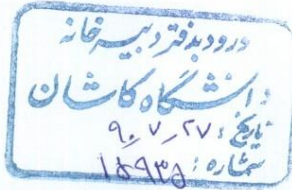 ورود به دفتر دبیرخانه
دانشگاه کاشان
تاریخ: ۹۰٫۷٫۲۷
شماره: ۱۵۹۳۵